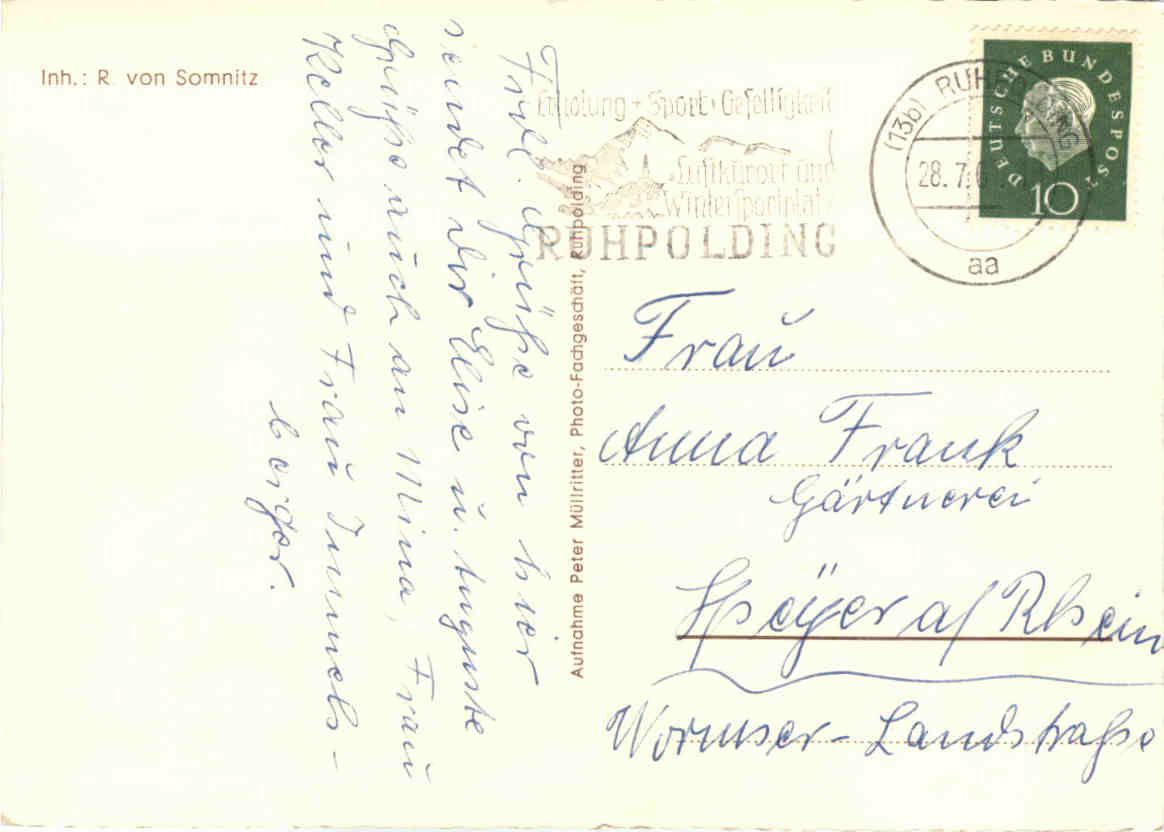 Inh.: R. von Somnitz
Viele Grüße von hier
sendet Dir Elise u. Auguste
Grüße auch an Mina, Frau
Keller und Frau Immels-
berger.
Aufnahme Peter Müllritter, Photo-Fachgeschäft, Ruhpolding
Erholung + Sport + Geselligkeit
Luftkurort und
Wintersportplatz
RUHPOLDING
(13b) RUHPOLDING
28. 7. 6
aa
DEUTSCHE BUNDESPOST
10
Frau
Anna Frank
Gärtnerei
Speÿer a/Rhein
Wormser-Landstraße